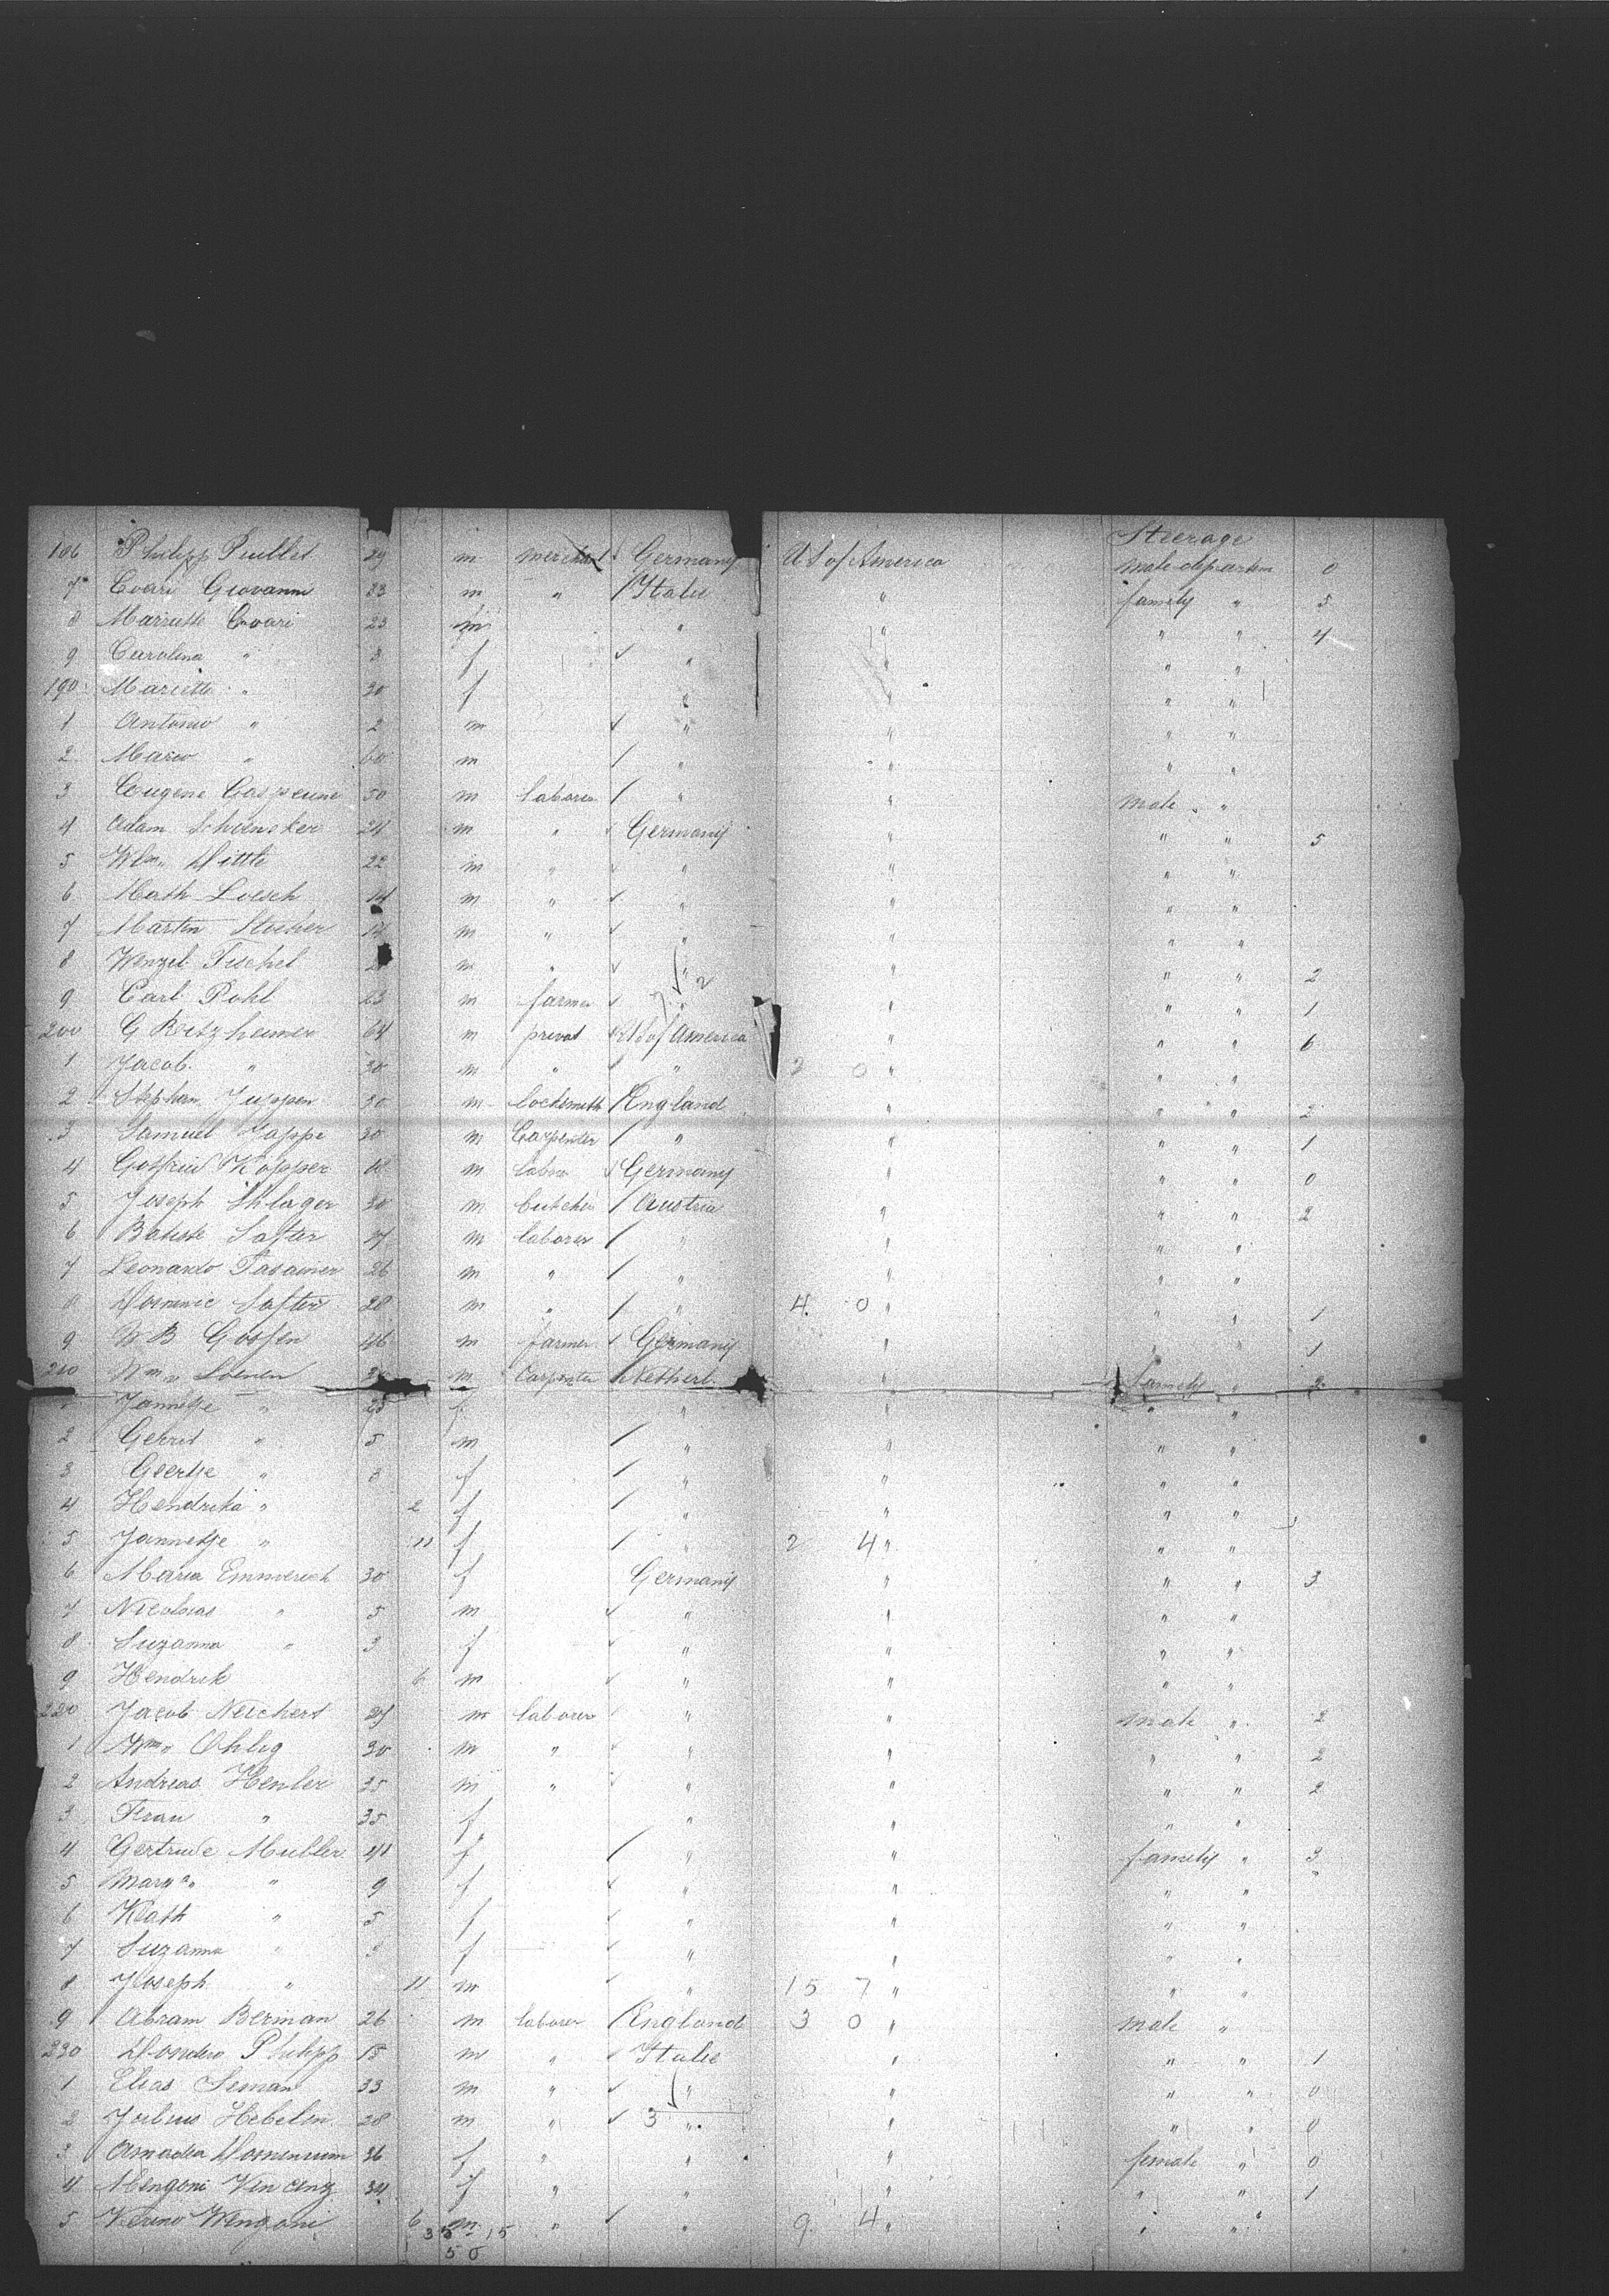 Steerage
186 Philipp 29 m merchant Germany U S of America male departm 0
7 Covari Giovanni 23 m " Italie " family " 5
8 Marriette Covari 23 m " " " " 4
9 Carolina " 3 f " " " "
190 Mariette " 30 f " " " "
1 Antonio " 2 m " " " "
2 Mario " 60 m " " " "
3 Eugene 50 m laborer " " male "
4 Adam 24 m " Germany " " " 5
5 Wm. Dittli 22 m " " " " "
6 Math Loesch 14 m " " " " "
7 Martin Stocker m " " " " "
8 Wenzel Fischel m " " " " " 2
9 Carl Pohl 23 m farmer " 7 2 " " " 1
200 G Roitzheimer 64 m privat U S of America " " " 6
1 Jacob " 30 m " " 2 0 " " "
2 Stephan Juppen 30 m locksmith England " " " 2
3 Samuel Jappe 30 m Carpenter " " " " 1
4 Gotfried Kopper 18 m labor Germany " " " 0
5 Joseph Schlager 30 m butcher Austria " " " 2
6 Batiste Softer m laborer " " " "
7 Leonardo 26 m " " " " "
8 Dominic Softer 28 m " " 4 0 " " " 1
9 W B Gossen 46 m farmer Germany " " " 1
210 Wm. Loenen m Carpenter Netherl. " family " 2
Jannetje " 25 f " " " "
2 Gerrit " 5 m " " " "
3 Geertje " 3 f " " " "
4 Hendrika " 2 f " " " "
5 Jannetje " 11 f " 2 4 " " "
6 Maria Emmerich 30 f Germany " " " 3
7 Nicolaas " 5 m " " " "
8 Suzanna " 3 f " " " "
9 Hendrik 6 m " " " "
220 Jacob Neichert 27 m laborer " " male " 2
1 Wm. Ohlig 30 m " " " " " 2
2 Andreas Henler 35 m " " " " " 2
3 Frau " 35 f " " " "
4 Gertrude Muller 41 f " " family " 3
5 Marya " 9 f " " " "
6 Kath " 5 f " " " "
7 Suzanna " 3 f " " " "
8 Joseph " 11 m " 15 7 " " "
9 Abram Berman 26 m laborer England 3 0 " male "
230 Philipp 18 m " Italie " " " 1
1 Elias Seman 33 m " " " " " 0
2 Julius Hebelin 28 m " 3 " " " " 0
3 Amadea 36 f " " " female " 0
4 Mengoni Vincenz 34 f " " " " " 1
5 Mengoni 6 m " " 9 4 " " "
35 15
50